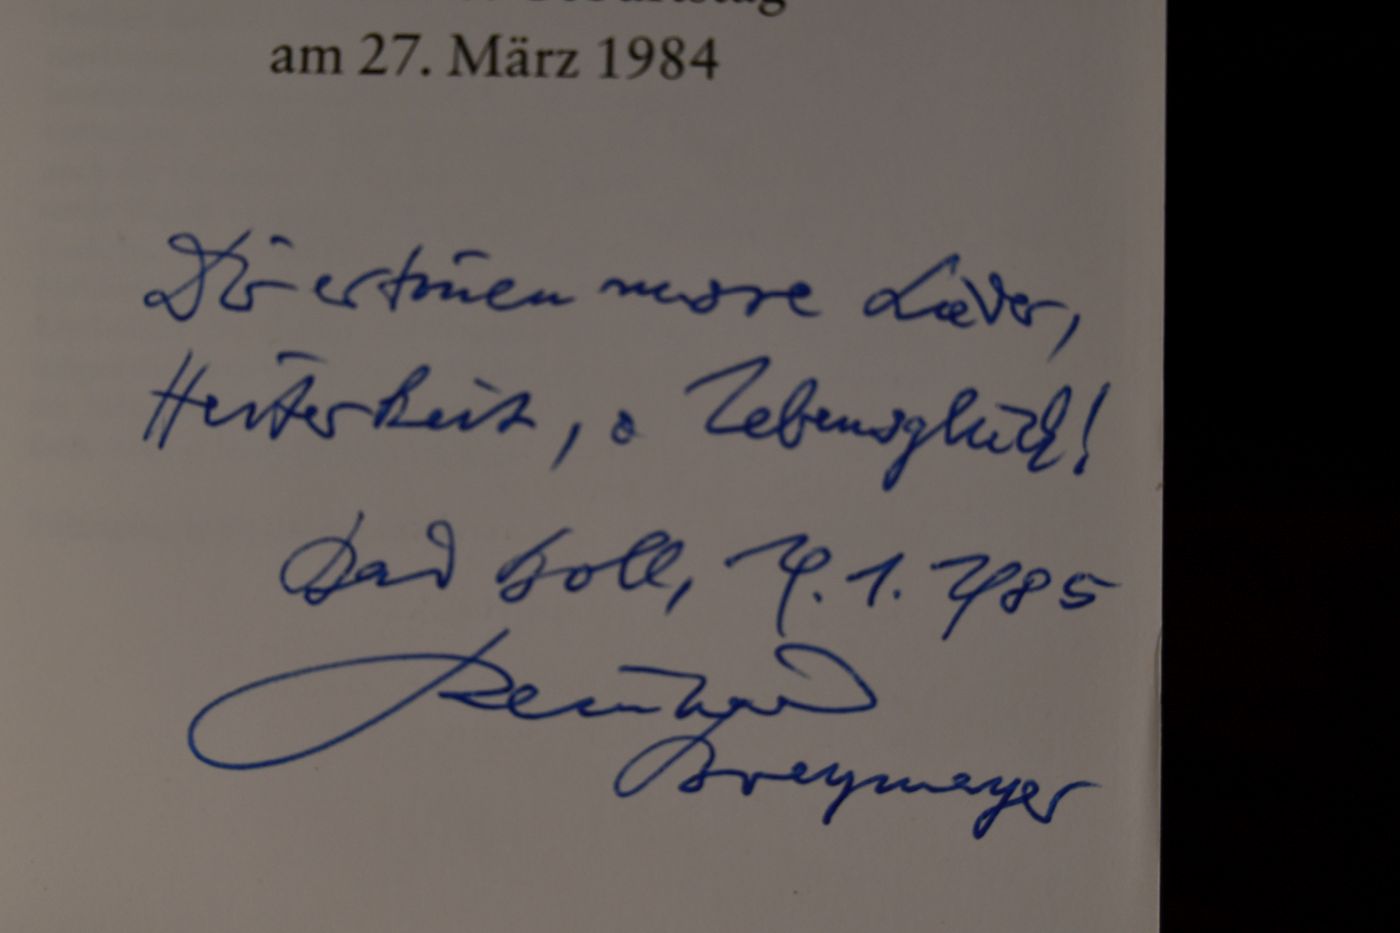 Geburtstag
am 27. März 1984
Dir ertönen unsre Lieder,
Heiterkeit, o Lebensglück!
Bad Boll, 4.1.1985
Reinhard
Breymayer